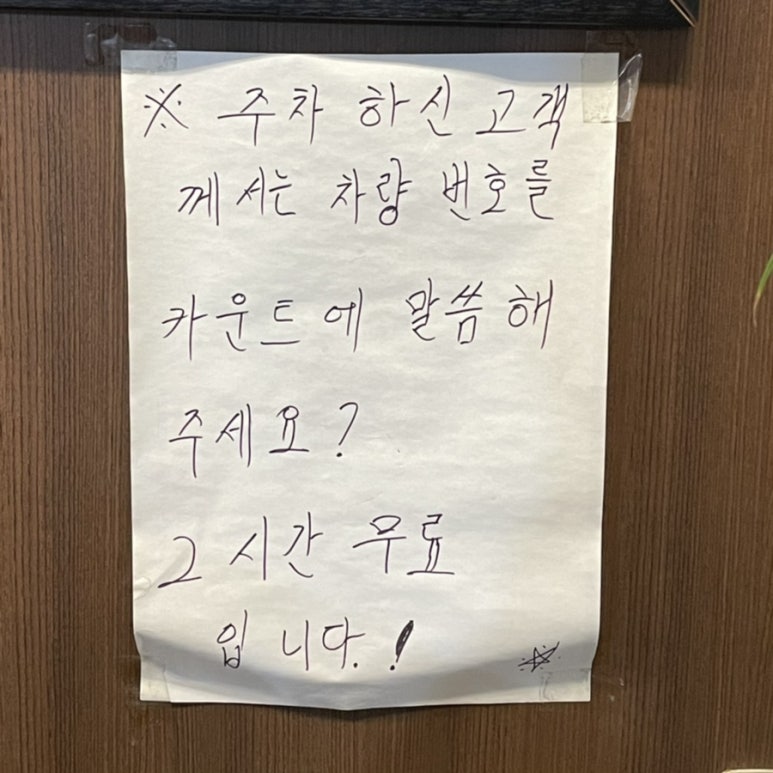 ※ 주차 하신 고객
께서는 차량 번호를
카운트에 말씀해
주세요?
2시간 무료
입니다.!